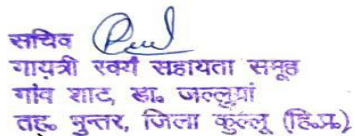 सचिव
गायत्री स्वयं सहायता समूह
गांव शाट, डा. जल्लुग्रां
तह. भुन्तर, जिला कुल्लू (हि.प्र.)